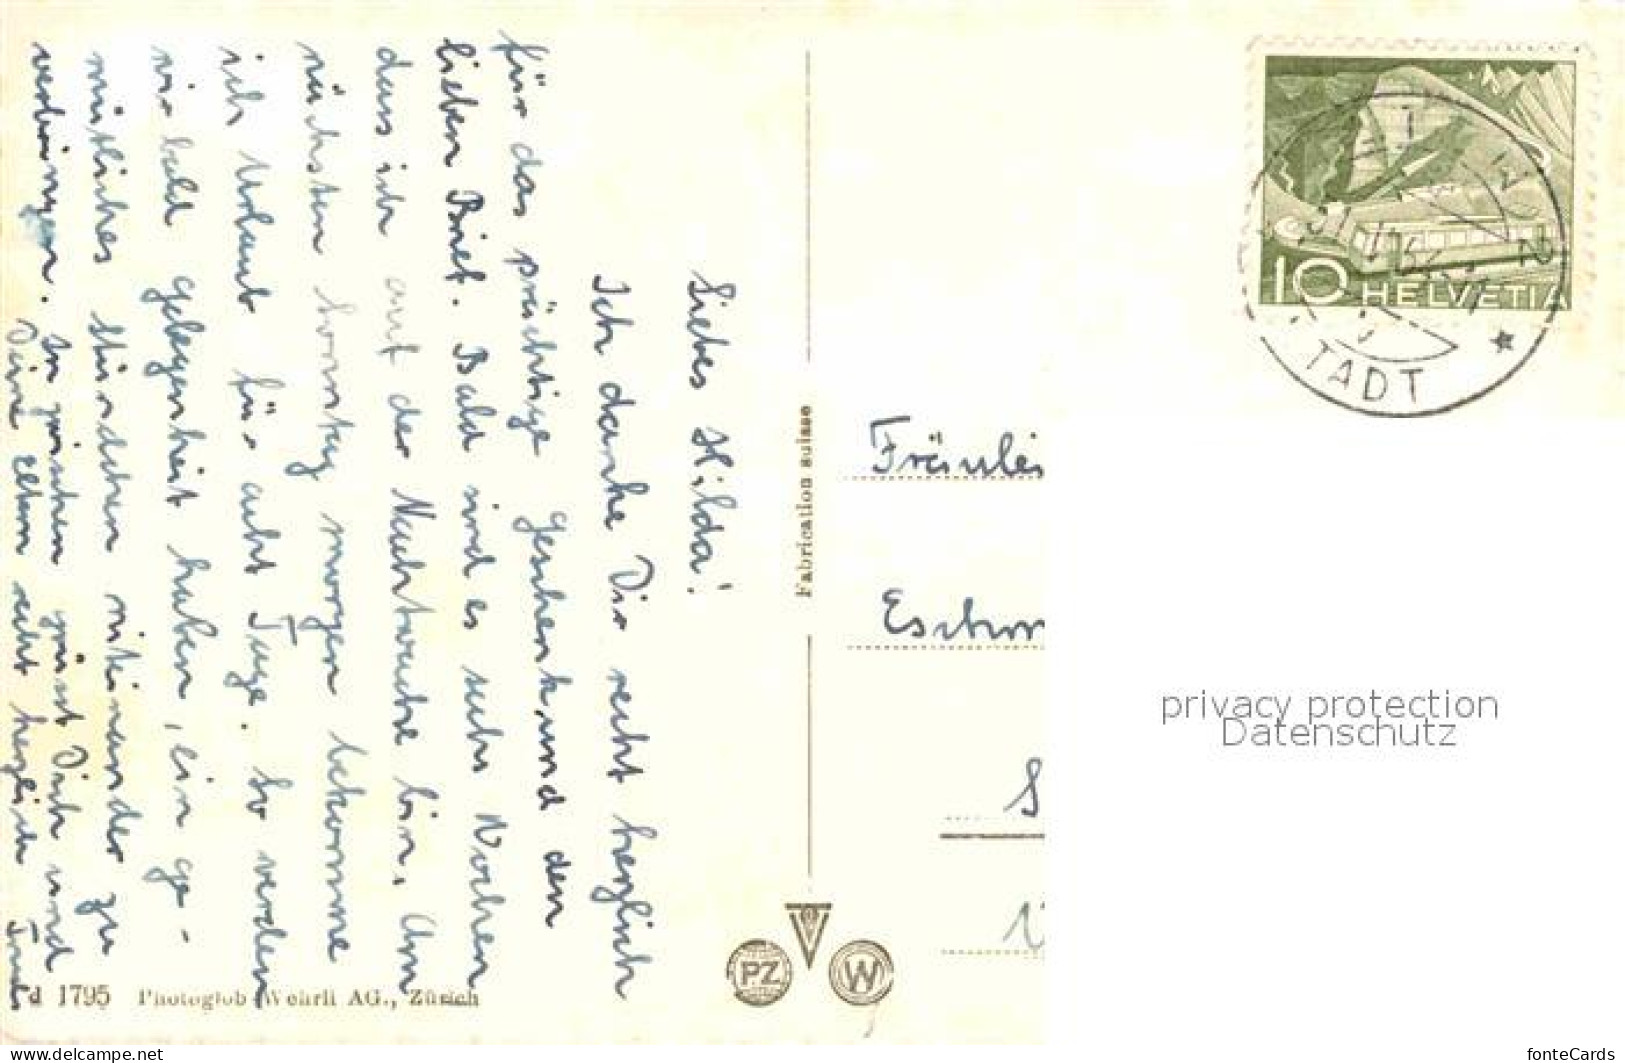 Liebes Hilda!
Ich danke Dir recht herzlich
für das prächtige Geschenk und den
lieben Brief. Bald sind es sechs Wochen
dass ich auf der Nachtwache bin. Am
nächsten Sonntag morgen bekomme
ich Urlaub für acht Tage. So werden
wir bald Gelegenheit haben, ein ge-
mütliches Stündchen miteinander zu
verbringen. In zwischen grüsst Dich und
Deine Eltern recht herzlich
Fabrication suisse
10 HELVETIA
TADT
Fräulei
Eschm
S
PZ
W
d 1795 Photoglob-Wehrli AG., Zürich
privacy protection
Datenschutz
www.delcampe.net
fonteCards